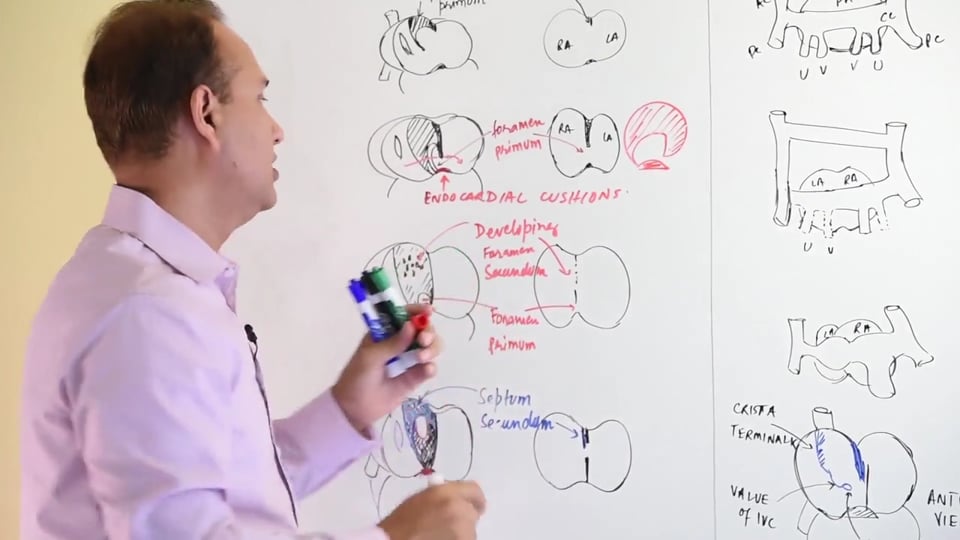 primum
RA
LA
foramen
primum
RA
LA
ENDOCARDIAL CUSHIONS.
Developing
Foramen
Secundum
Foramen
primum
Septum
Secundum
CC
PC
PC
U V V U
LA RA
U V
LA RA
CRISTA
TERMINALI
VALUE
of IVC
ANT
VIE